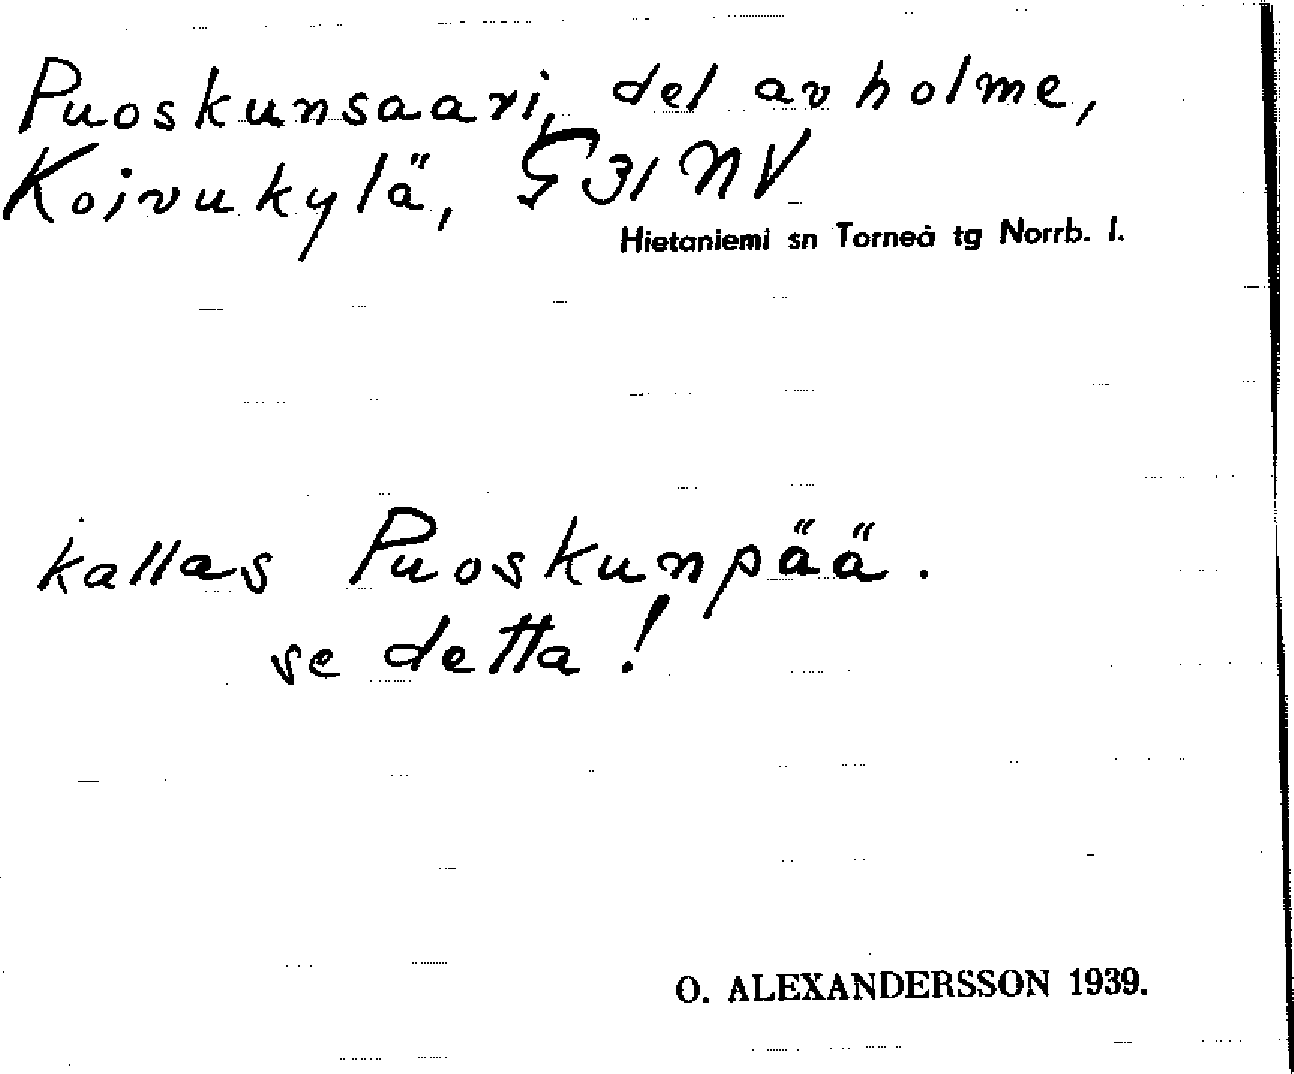 Puoskunsaari, del av holme,
Koivukylä, G 31 NV
Hietaniemi sn Torneå tg Norrb. l.
kallas Puoskunpää.
se detta!
O. ALEXANDERSSON 1939.